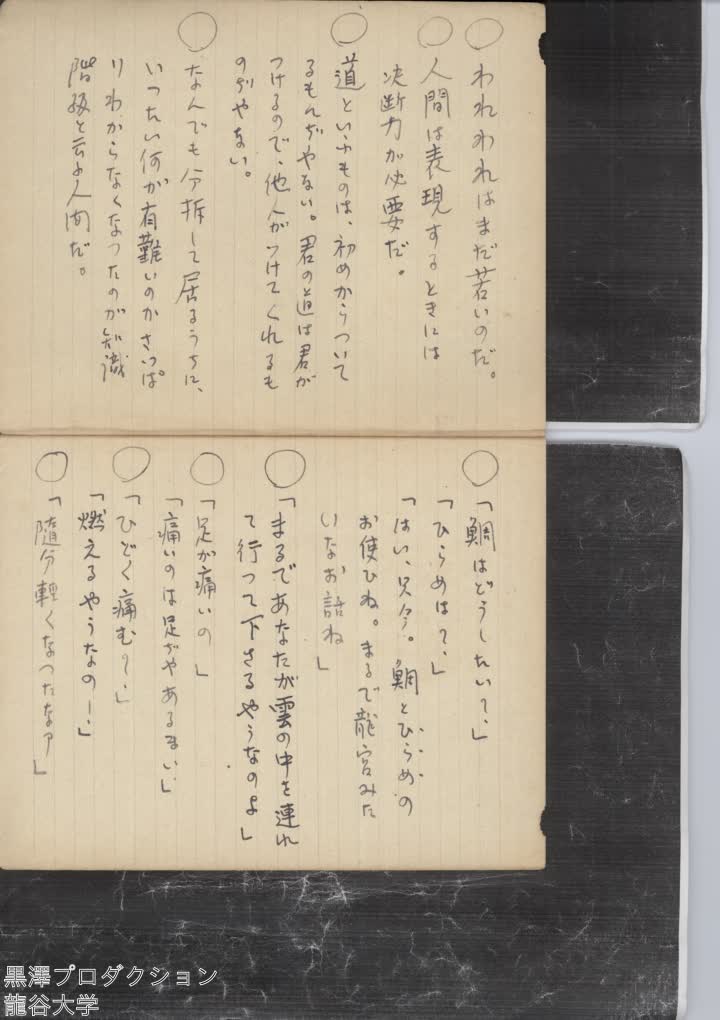 ○ われわれはまだ若いのだ。
○ 人間は表現するときには
決断力が必要だ。
○ 道といふものは、初めからついて
るもんぢやない。君の道は君が
つけるので、他人がつけてくれるも
のぢやない。
○ なんでも分析して居るうちに、
いつたい何が有難いのかさつぱ
りわからなくなつたのが知識
階級と云ふ人間だ。
○ 「鯛はどうしたい?」
「ひらめは?」
「はい、只今。鯛とひらめの
お使ひね。まるで龍宮みた
いなお話ね」
○ 「まるであなたが雲の中を連れ
て行つて下さるやうなのよ」
○ 「足が痛いの」
「痛いのは足ぢやあるまい」
○ 「ひどく痛む?」
「燃えるやうなのー」
○ 「随分軽くなつたなア」
黒澤プロダクション
龍谷大学